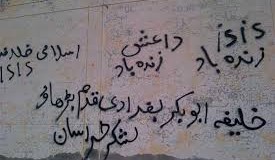 isis
زندہ باد
داعش
زندہ باد
اسلامی خلاف
ISIS
خلیفہ ابوبکر بغدادی قدم بڑھاؤ
لشکر خراسان